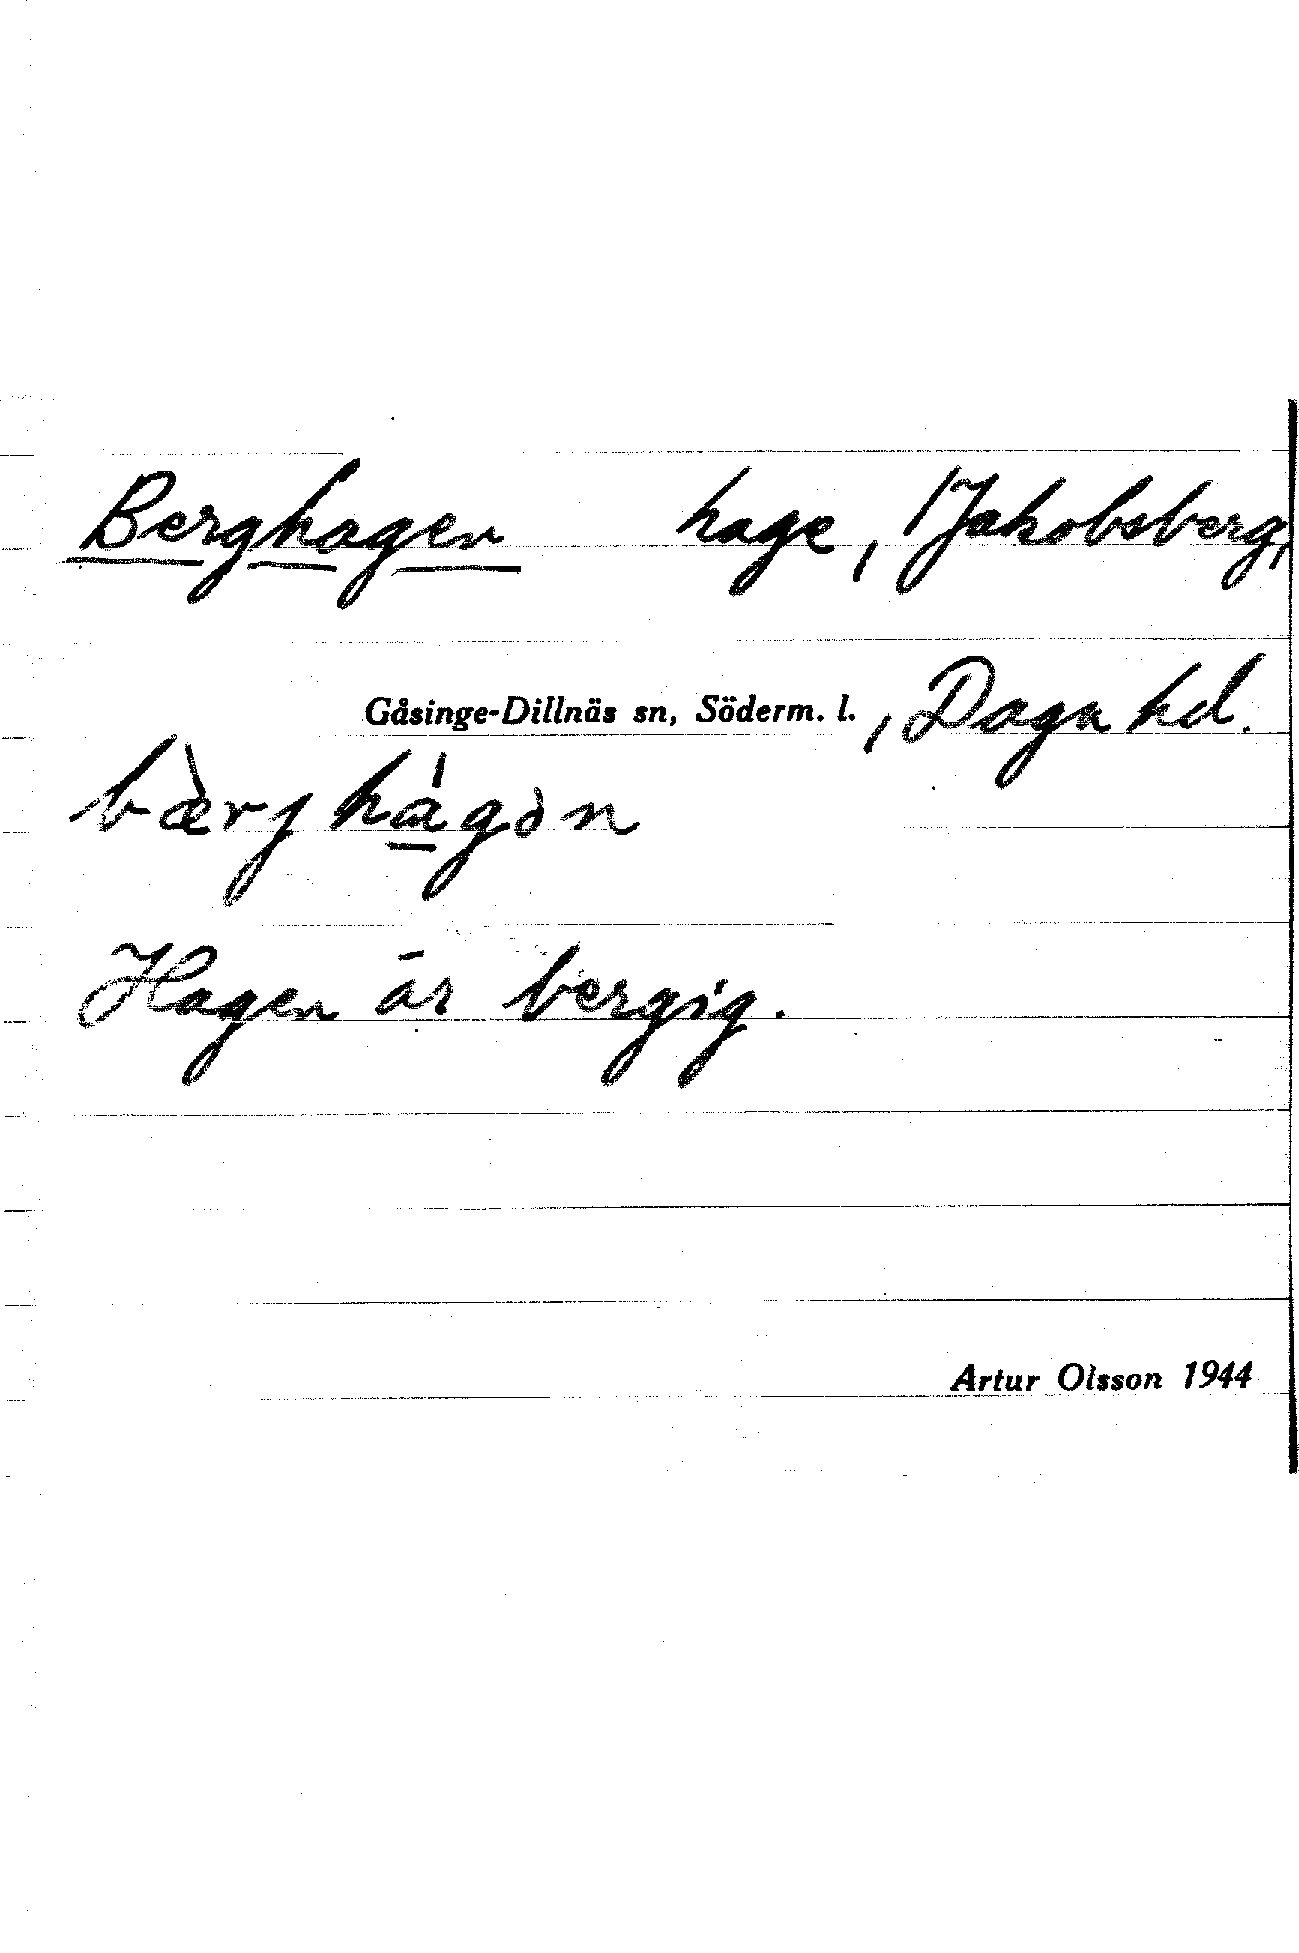 Berghagen hage, /Jakobsberg,
Gåsinge-Dillnäs sn, Söderm. l., Daga hd.
bæ̀rjhágən
Hagen är bergig.
Artur Olsson 1944